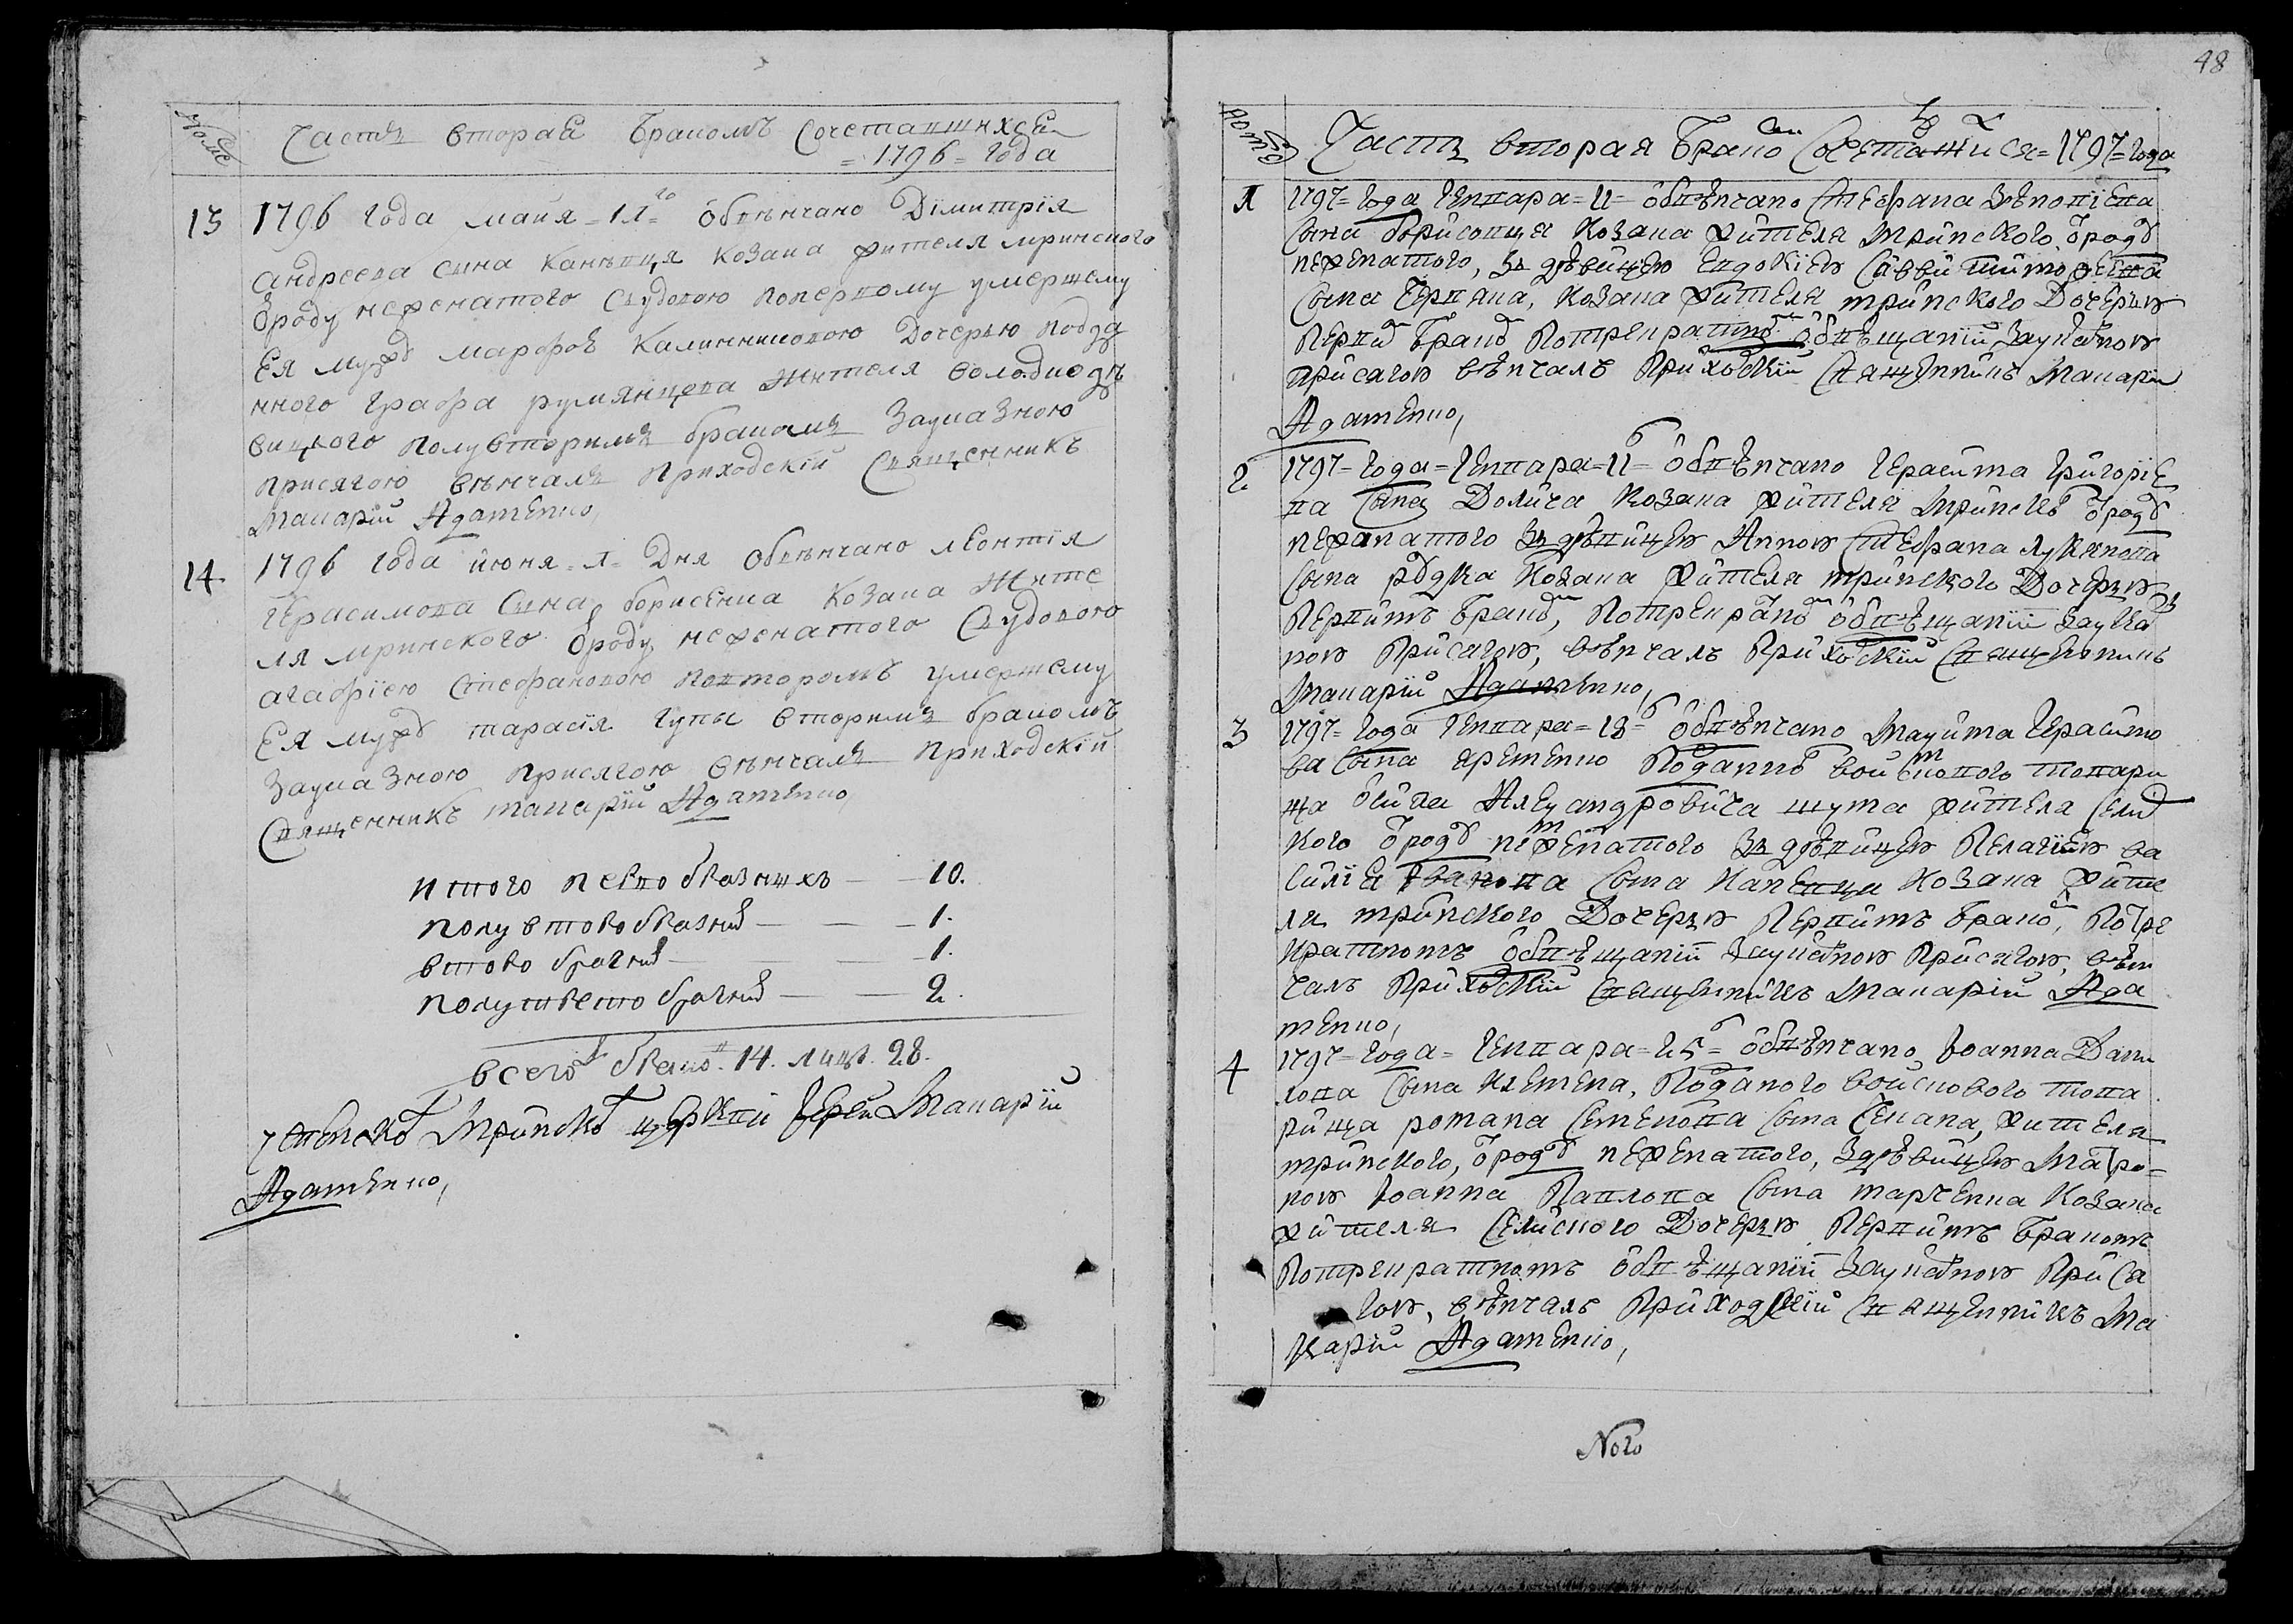 Номе
Часть вторая бракомъ сочетавшихся
= 1796 = года
13 1796 года майя = 11го= обвѣнчано Димитрїя
андреева сина канѣвця козака жителя мринского
ѿроду неженатого су вдовою по первому умершему
Ея мужу марфоѣ Калинниковою Дочерью подда
нного графа румянцева жителя володков
вицкого полувторимъ бракомъ Заука Зною
присягою вѣнчалъ Приходскїй Священникъ
Макарїй Адаменко,
14. 1796 года июня = 1 = Дня обвѣнчано леонтїя
герасимова сина борисенка козака Жите
ля мринского ѿроду неженатого су вдовою
агафїею стефановою по второмъ умершему
Ея мужу тарасїя гупы вторимъ бракомъ
Заука Зною присягою вѣнчалъ Приходскїй
Священникъ макарїй Адаменко,
итого первобрачнихъ — 10.
полувторобрачних — 1.
второбрачних — 1.
полутретобрачних — 2.
всего браков. 14. лицъ. 28.
Успенской Мринской церкви Іерей Макарїй
Адаменко,
48
Номе
Часть вторая Браком Сочетавшихся = 1797 = года
1 1797 = года генвара = 11 = обвѣнчано Стефана
Сина борисовця Козака жителя мринского, ѿроду
неженатого, з дѣвицею Евдокїею Саввы
Сына Козака жителя мринского Дочерью
Первим Браком По трекратном обвѣщанїи За указною
присягою вѣнчалъ Приходскїй Священникъ Макарїй
Адаменко,
2 1797 = года = генвара = 11 = обвѣнчано герасима григорїе
ва Сына Долича Козака жителя Мринского ѿроду
неженатого з дѣвицею Анною Стефана лукянова
Сына рудка Козака жителя мринского Дочерью
Первимъ браком, По трекратном обвѣщанїи За указ
ною Присягою, вѣнчалъ Приходскїй Священникъ
Макарїй Адаменко,
3 1797 = года генвара = 13 = обвѣнчано Мауима герасимо
ва Сына яременко Подданного войскового товари
ща Алеуандровича шума жителя Селис
кого ѿроду неженатого з дѣвицею Пелагїею ва
силїя Іванова Сына Каневця Козака жите
ля мринского Дочерью Первимъ браком, По тре
кратномъ обвѣщанїи За указною Присягою, вѣн
чалъ Приходскїй Священникъ Макарїй Ада
менко,
4 1797 = года = генвара = 25 = обвѣнчано, Іоанна Дани
лова Сына Клемена, Подданого войскового това
рища романа Семенова Сына Чекана, жителя
мринского, ѿроду неженатого, з дѣвицею Матро=
ною Іоанна Павлова Сына марченка Козака
жителя Селиского Дочерью Первимъ бракомъ
По трекратномъ обвѣщанїи За указною Прися
гою, вѣнчалъ Приходскїй Священникъ Ма
карїй Адаменко,